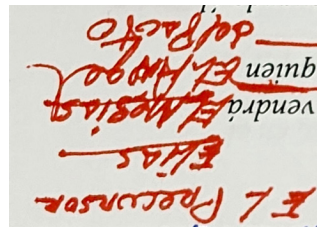 EL PRECURSOR
Elías
vendrá El Mesías
quien EL Angel
del Pacto